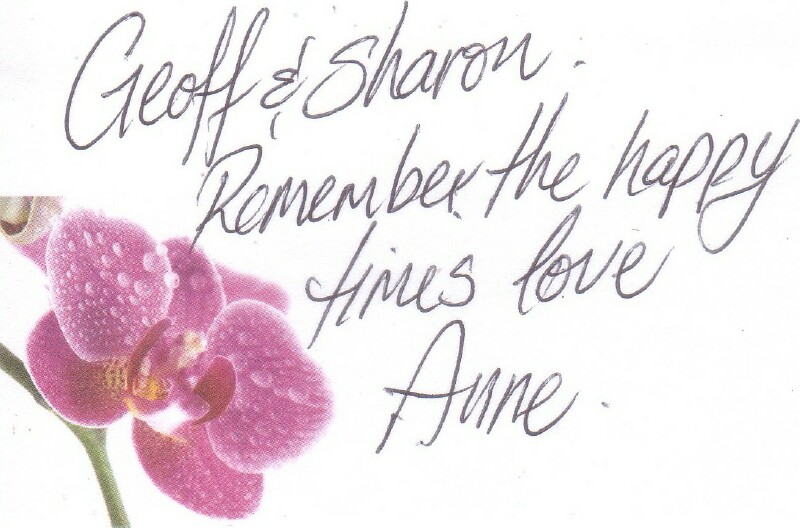 Geoff & Sharon.
Remember the happy
times love
Anne.